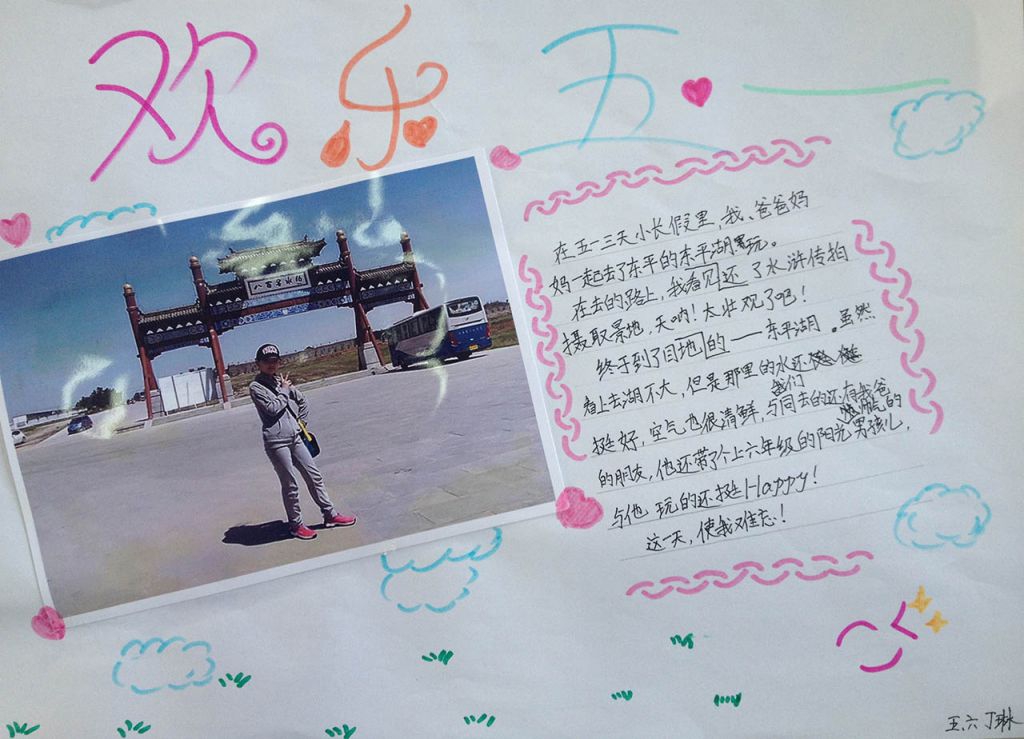 欢乐五一
八百里水泊
在五一三天小长假里，我、爸爸妈
妈一起去了东平的东平湖玩。
在去的路上，我看见还了水浒传拍
摄取景地，天呐！太壮观了吧！
终于到了目地的——东平湖。虽然
看上去湖不大，但是那里的水还
挺好，空气也很清鲜，与我们同去的还有我爸爸
的朋友，他还带了个上六年级的阳光帅气的男孩儿，
与他玩的还挺Happy！
这一天，使我难忘！
五、六 丁琳